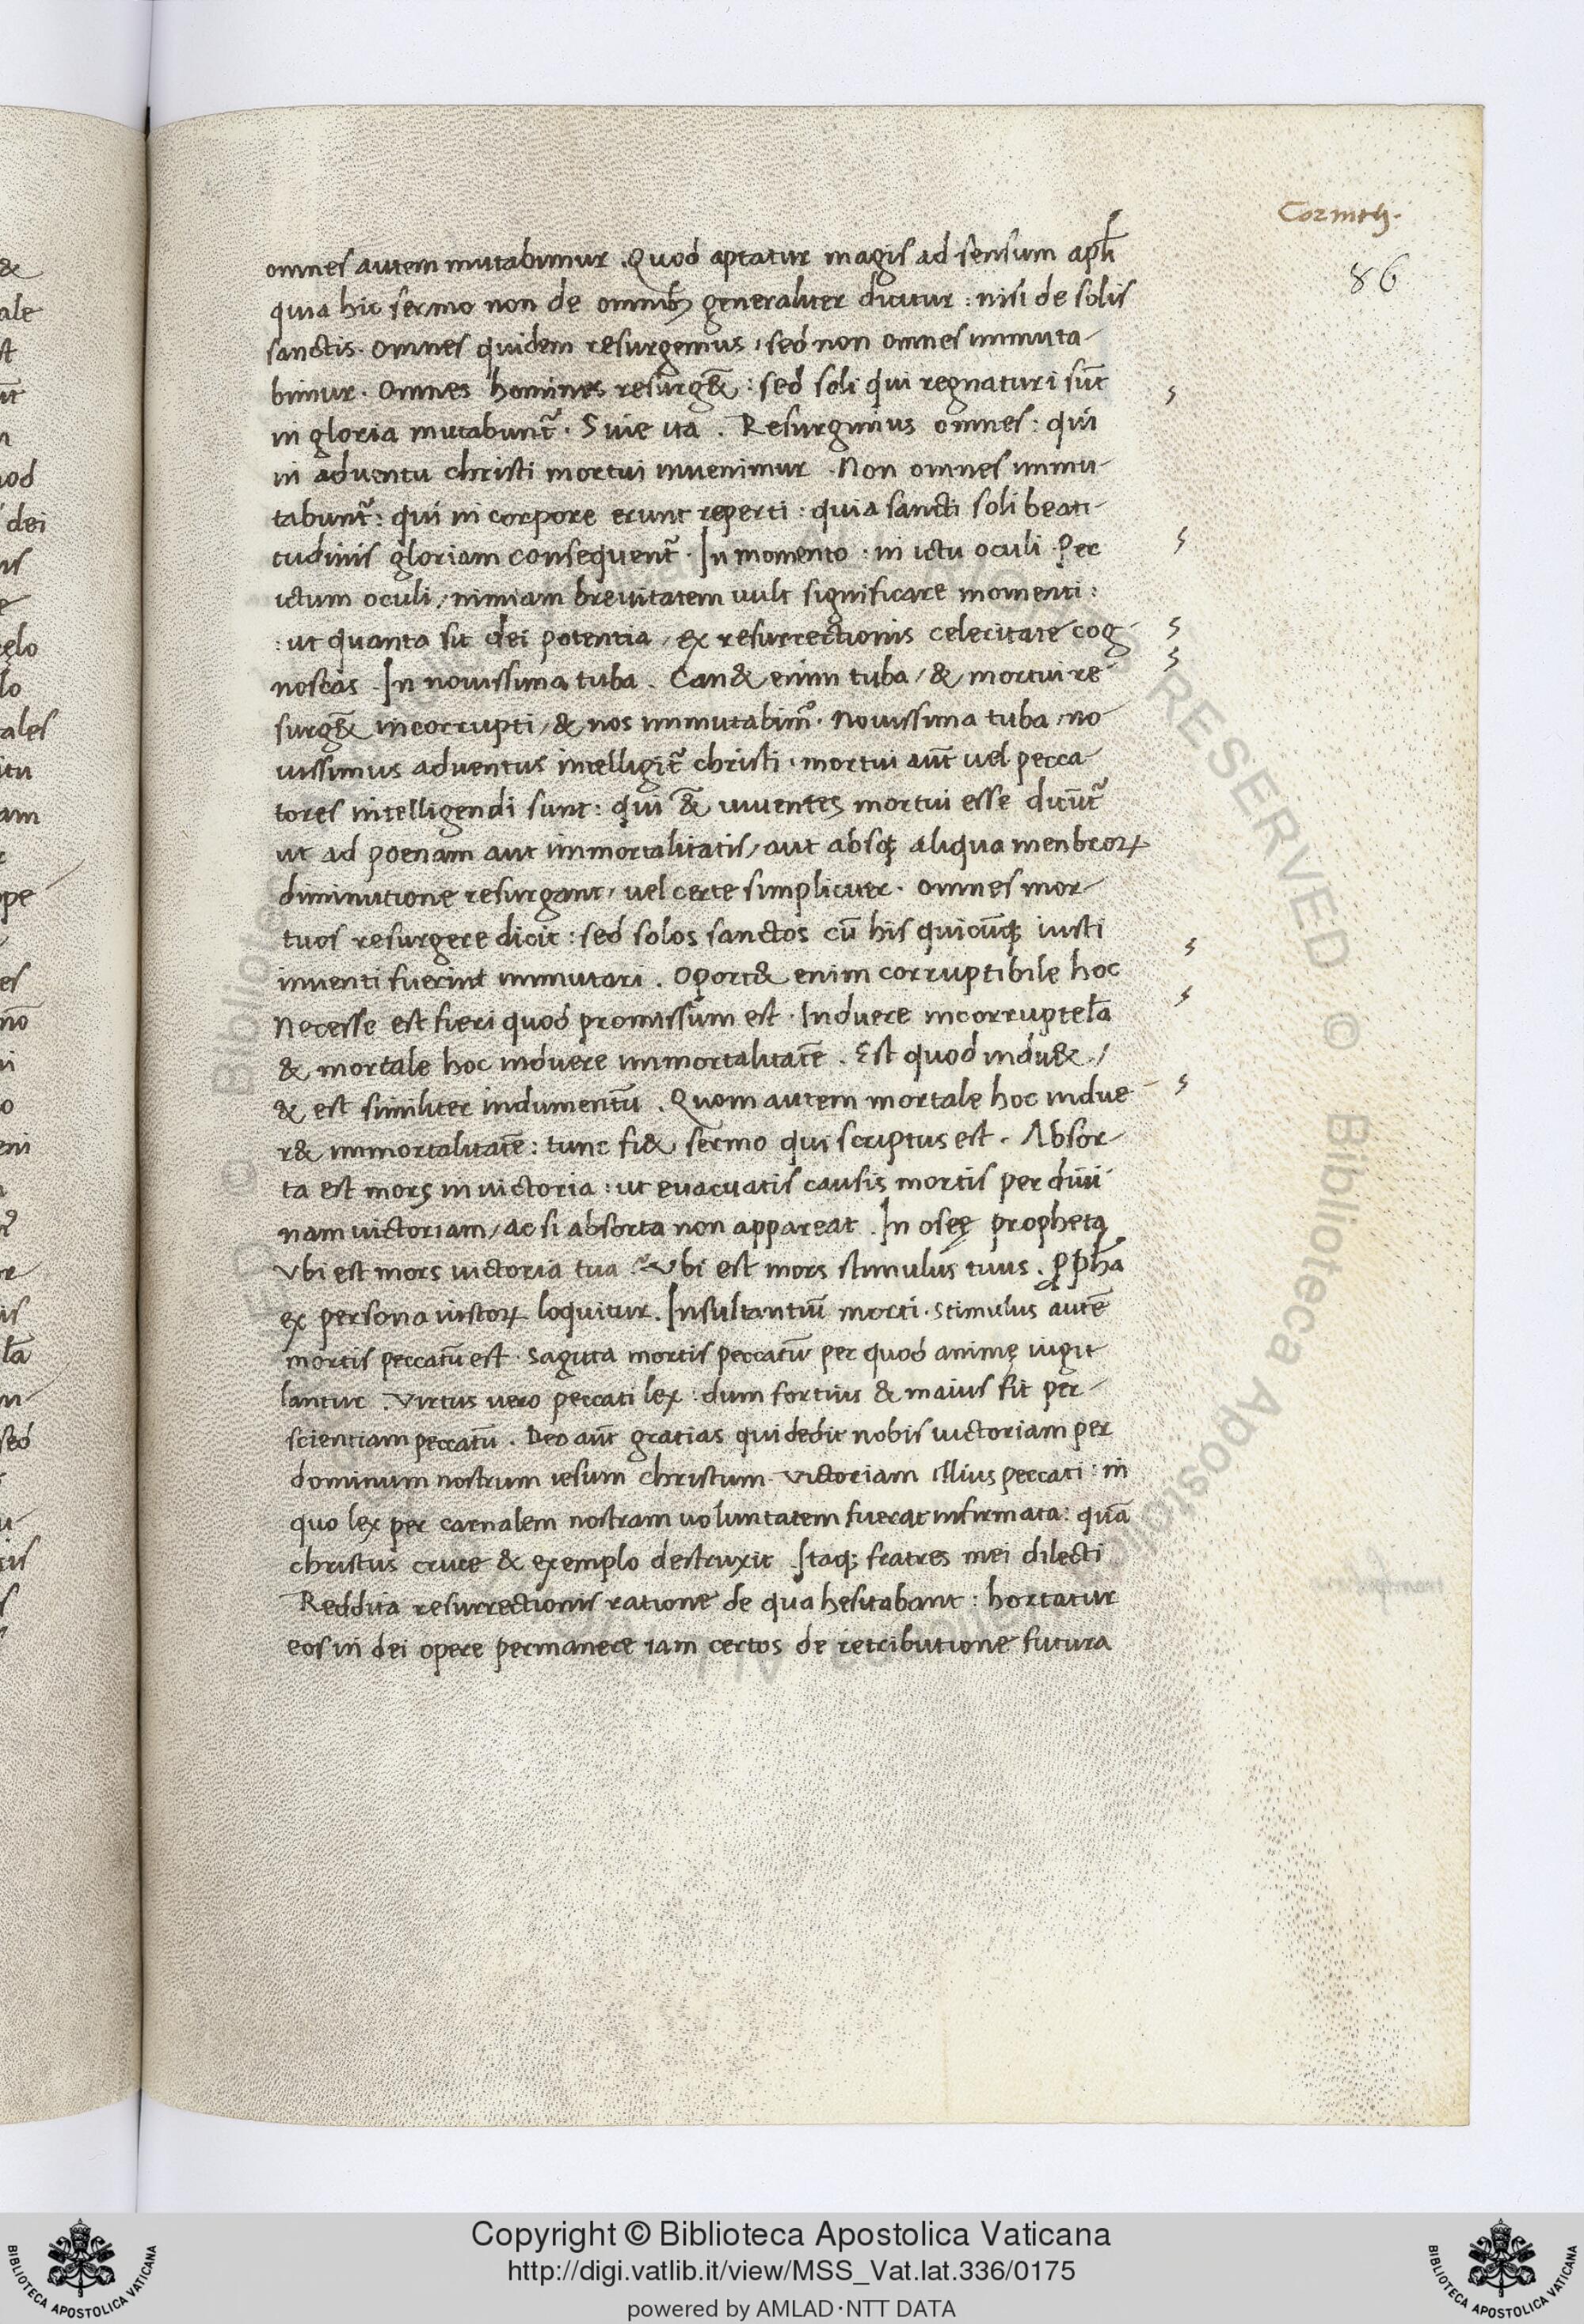 Corinth.
86
omnes autem mutabimur. Quod aptatur magis ad sensum apłi
quia hic sermo non de omnibꝫ generaliter dicitur: nisi de solis
sanctis. Omnes quidem resurgemus, sed non omnes immuta-
bimur. Omnes homines resurg&̄: sed soli qui regnaturi sūt
in gloria mutabunt᷑. Siue ita. Resurgimus omnes: qui
in aduentu christi mortui inuenimur. Non omnes immu-
tabunt᷑: qui in corpore erunt reperti: quia sancti soli beati-
tudinis gloriam consequent᷑. In momento: in ictu oculi. Per
ictum oculi, nimiam breuitatem uult significare momenti:
: ut quanta sit dei potentia, ex resurrectionis celeritate cog-
noscas. In nouissima tuba. Can& enim tuba, & mortui re-
surg&̄ incorrupti, & nos immutabim᷒. Nouissima tuba, no
uissimus aduentus intelligit᷑ christi. mortui aūt uel pecca-
tores intelligendi sunt: qui &̄ uiuentes mortui esse dicūt᷑
ut ad poenam aut immortalitatis, aut absqꝫ aliqua menbroꝝ
diminutione resurgant, uel certe simpliciter. Omnes mor-
tuos resurgere dicit: sed solos sanctos cū his quicūqꝫ iusti
inuenti fuerint immutari. Oport& enim corruptibile hoc
Necesse est fieri quod promissum est. Induere incorrupteła
& mortale hoc induere immortalitatē. Est quod indu&,
& est similiter indumentū. Quom autem mortale hoc indue-
r& immortalitatē: tunc fi& sermo qui scriptus est. Absor-
ta est mors in victoria: ut euacuatis causis mortis per diui
nam victoriam, ac si absorta non appareat. In oseę propheta
Vbi est mors uictoria tua? Vbi est mors stimulus tuus. Ꝓpħa
ex persona iustoꝝ loquitur. Insultantiū morti. Stimulus autē
mortis peccatū est. Sagitta mortis peccatū per quod animę iugu
lantur. Virtus uero peccati lex: dum fortius & maius fit per-
scientiam peccatū. Deo aūt gratias qui dedit nobis uictoriam per
dominum nostrum iesum christum. Victoriam illius peccati: in
quo lex per carnalem nostram uoluntatem fuerat infirmata: quā
christus cruce & exemplo destruxit. Itaqꝫ fratres mei dilecti
Reddita resurrectionis ratione de qua hesitabant: hortatur
eos in dei opere permanere iam certos de retributione futura
Copyright © Biblioteca Apostolica Vaticana
http://digi.vatlib.it/view/MSS_Vat.lat.336/0175
powered by AMLAD·NTT DATA
BIBLIOTECA APOSTOLICA VATICANA
BIBLIOTECA APOSTOLICA VATICANA